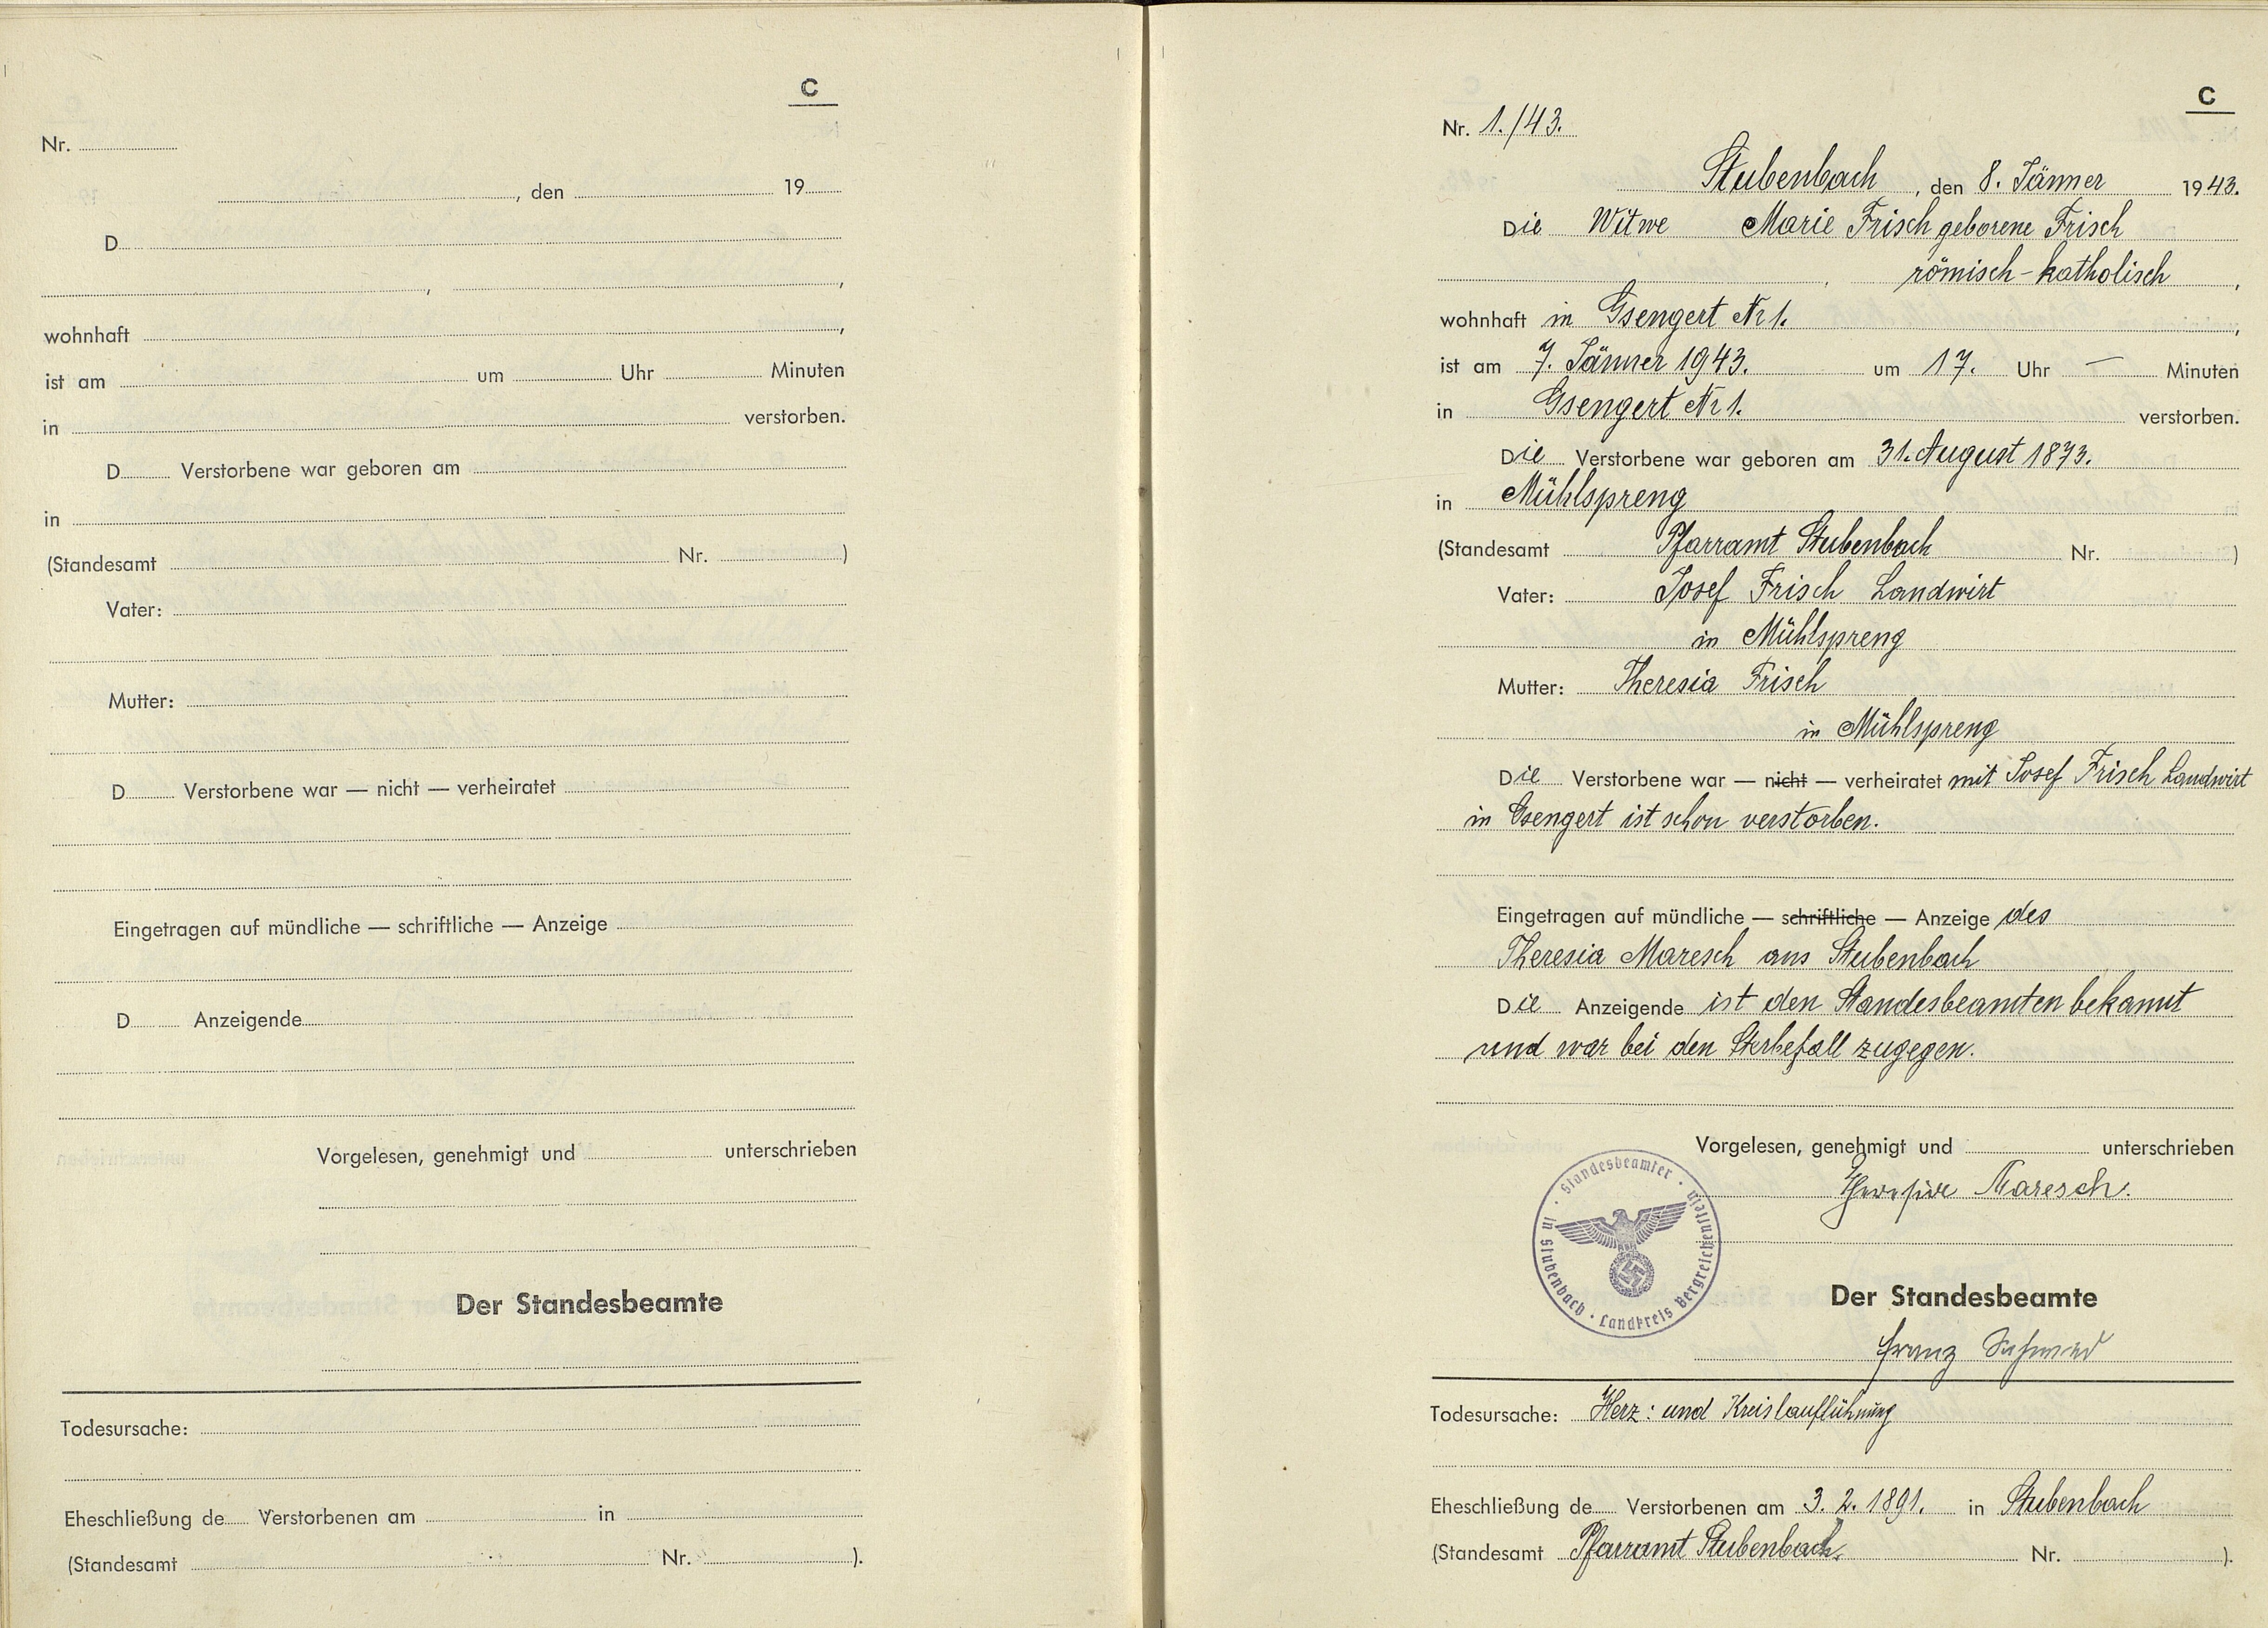 C
Nr.
, den 19
D
,
,
wohnhaft ,
ist am um Uhr Minuten
in verstorben.
D Verstorbene war geboren am
in
(Standesamt Nr. )
Vater:
Mutter:
D Verstorbene war — nicht — verheiratet
Eingetragen auf mündliche — schriftliche — Anzeige
D Anzeigende
Vorgelesen, genehmigt und unterschrieben
Der Standesbeamte
Todesursache:
Eheschließung de Verstorbenen am in
(Standesamt Nr. ).
C
Nr. 1./43.
Stubenbach, den 8. Jänner 1943.
Die Witwe Marie Frisch geborene Frisch
, römisch-katholisch,
wohnhaft in Gsengert Nr 1.,
ist am 7. Jänner 1943. um 17. Uhr — Minuten
in Gsengert Nr 1. verstorben.
Die Verstorbene war geboren am 31. August 1873.
in Mühlspreng
(Standesamt Pfarramt Stubenbach Nr. )
Vater: Josef Frisch Landwirt
in Mühlspreng
Mutter: Theresia Frisch
in Mühlspreng
Die Verstorbene war — nicht — verheiratet mit Josef Frisch Landwirt
in Gsengert ist schon verstorben.
Eingetragen auf mündliche — schriftliche — Anzeige des
Theresia Maresch aus Stubenbach
Die Anzeigende ist den Standesbeamten bekannt
und war bei den Sterbefall zugegen.
Vorgelesen, genehmigt und unterschrieben
Maresch.
Standesbeamter · in Stubenbach · Landkreis Bergreichenstein
Der Standesbeamte
Franz
Todesursache: Herz: und
Eheschließung de Verstorbenen am 3. 2. 1891. in Stubenbach
(Standesamt Pfarramt Stubenbach. Nr. ).